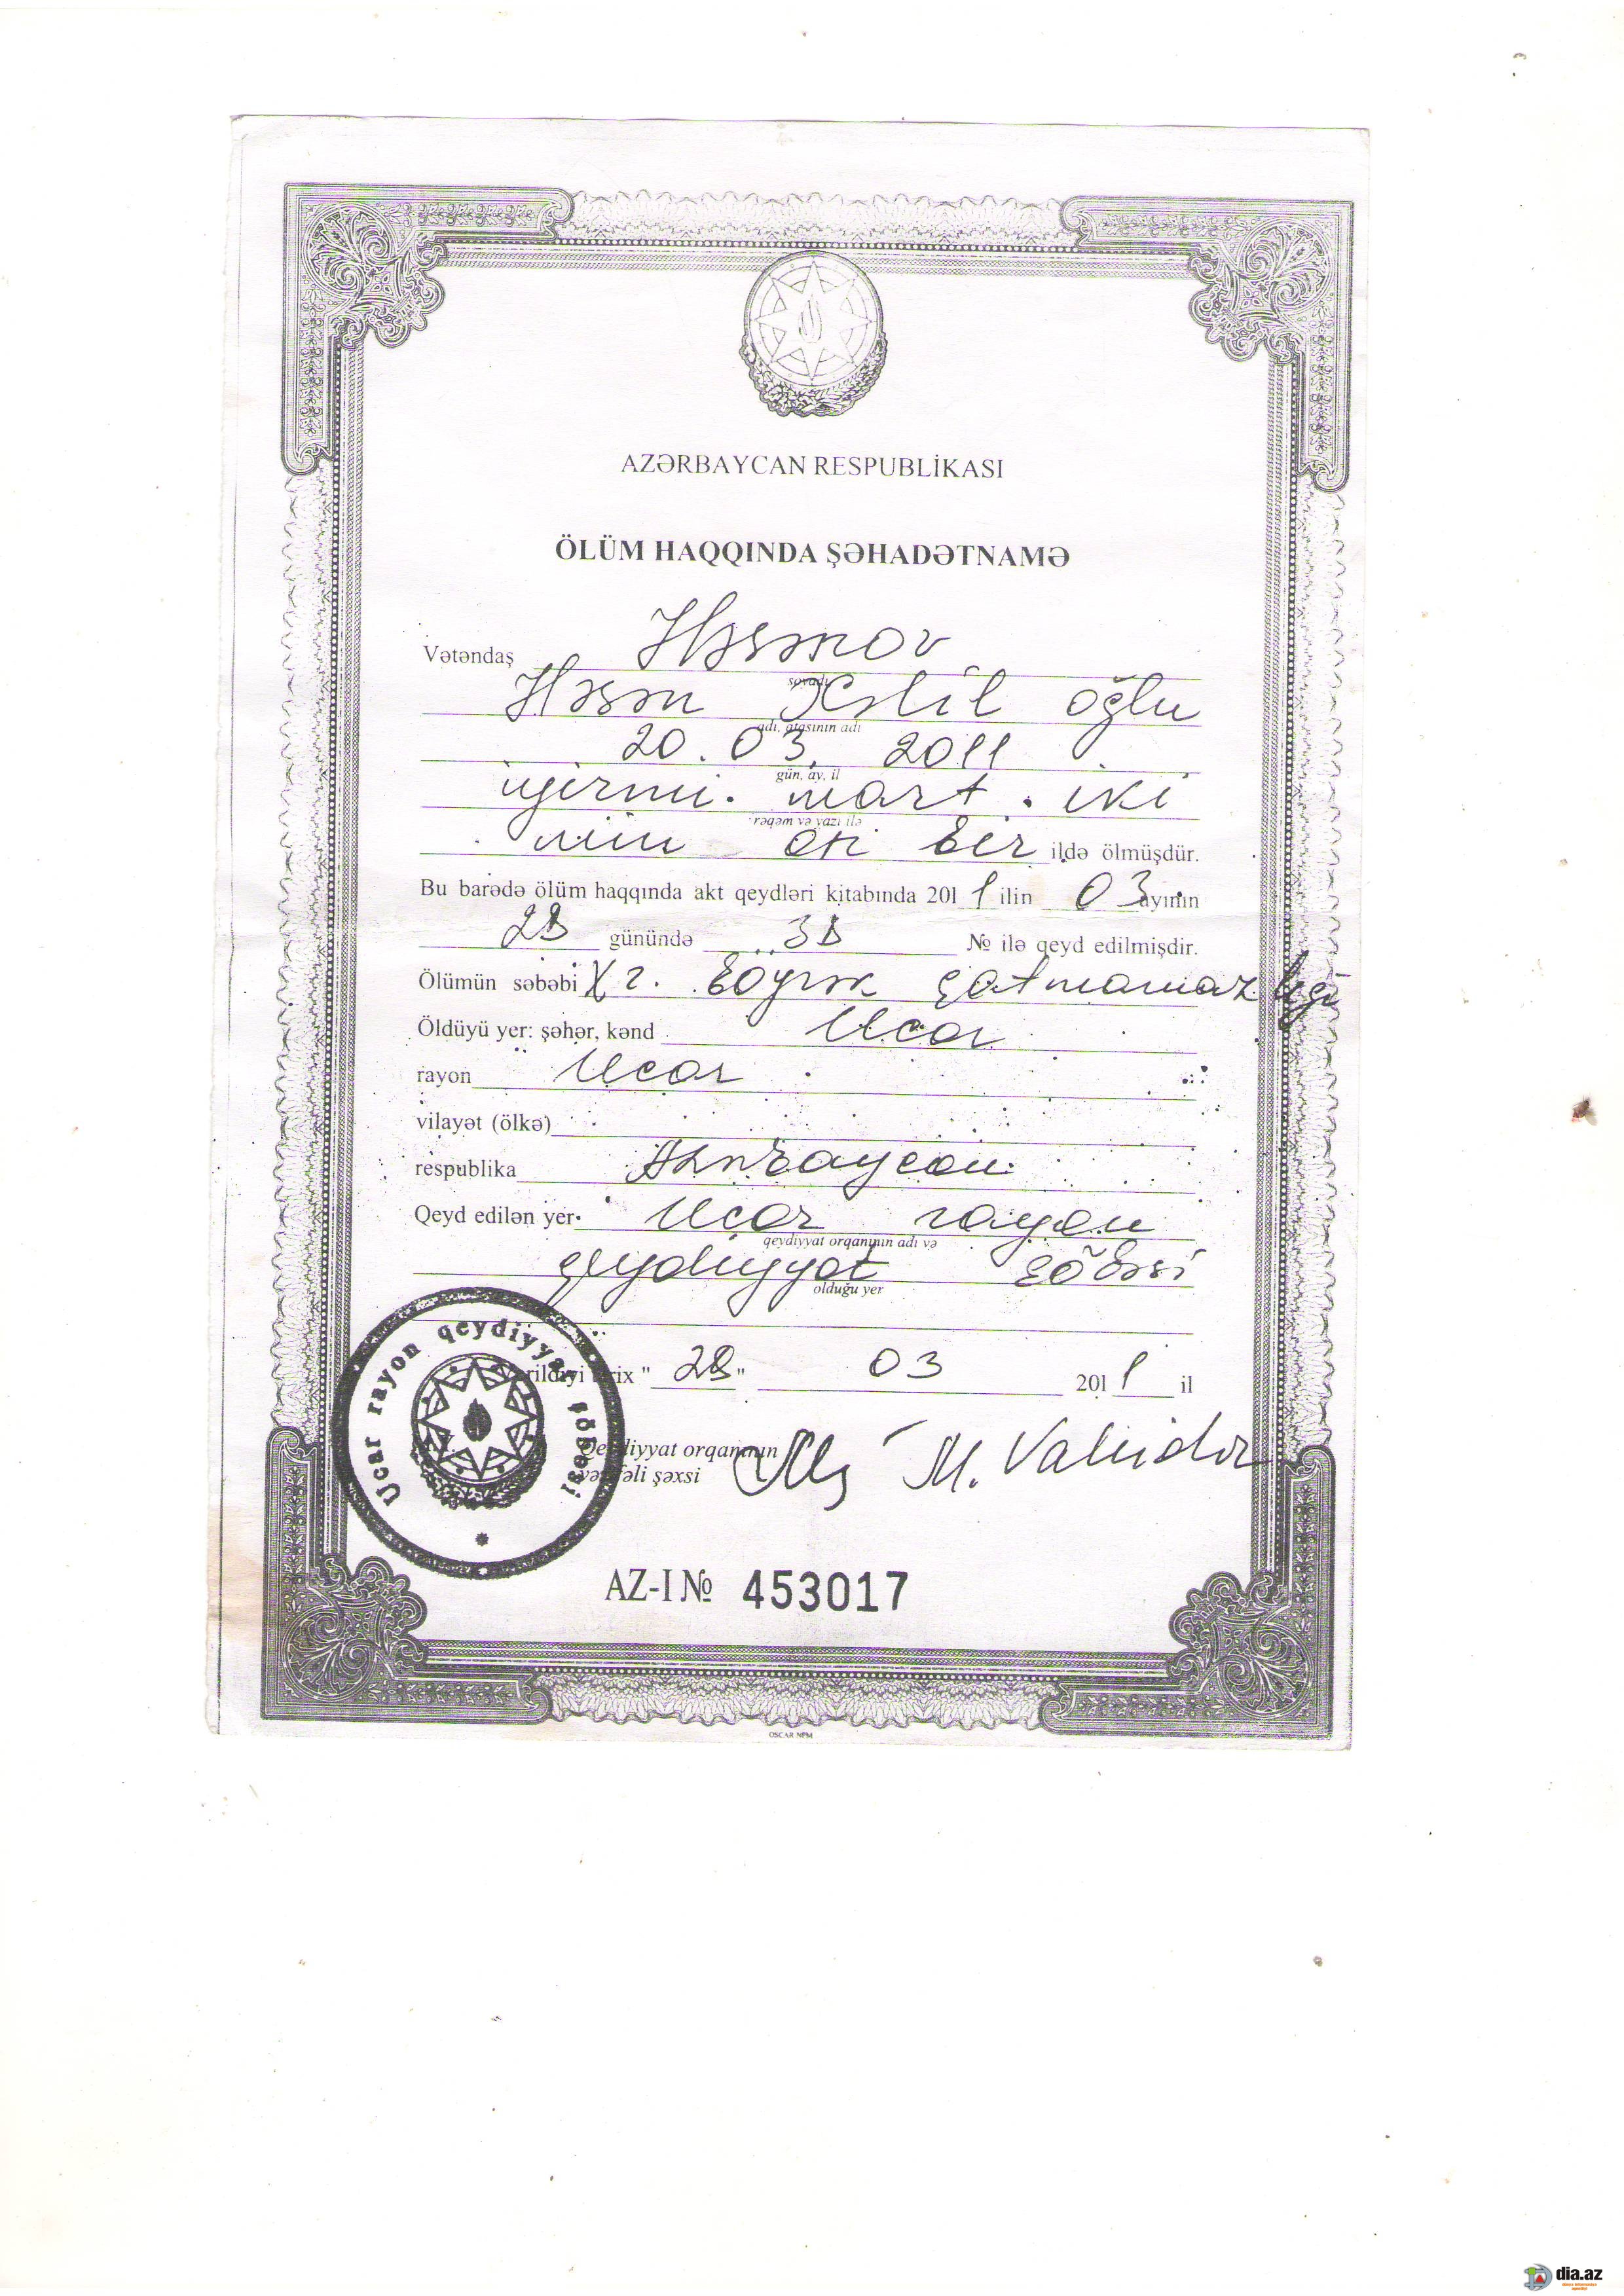 AZƏRBAYCAN RESPUBLİKASI
ÖLÜM HAQQINDA ŞƏHADƏTNAMƏ
Vətəndaş Həsənov
soyadı
Həsən Xəlil oğlu
adı, atasının adı
20.03.2011
gün, ay, il
iyirmi. mart. iki
rəqəm və yazı ilə
min on bir ildə ölmüşdür.
Bu barədə ölüm haqqında akt qeydləri kitabında 2011 ilin 03 ayının
28 günündə 38 № ilə qeyd edilmişdir.
Ölümün səbəbi Xr. Böyrək çatmamazlığı
Öldüyü yer: şəhər, kənd Ucar
rayon Ucar
vilayət (ölkə)
respublika Azərbaycan
Qeyd edilən yer Ucar rayon
qeydiyyat orqanının adı və
qeydiyyat şöbəsi
olduğu yer
Verildiyi tarix "28" 03 2011 il
Qeydiyyat orqanının
vəzifəli şəxsi M. Vahidov
Ucar rayon qeydiyyat şöbəsi
AZ-I № 453017
OSCAR NPM
dia.az